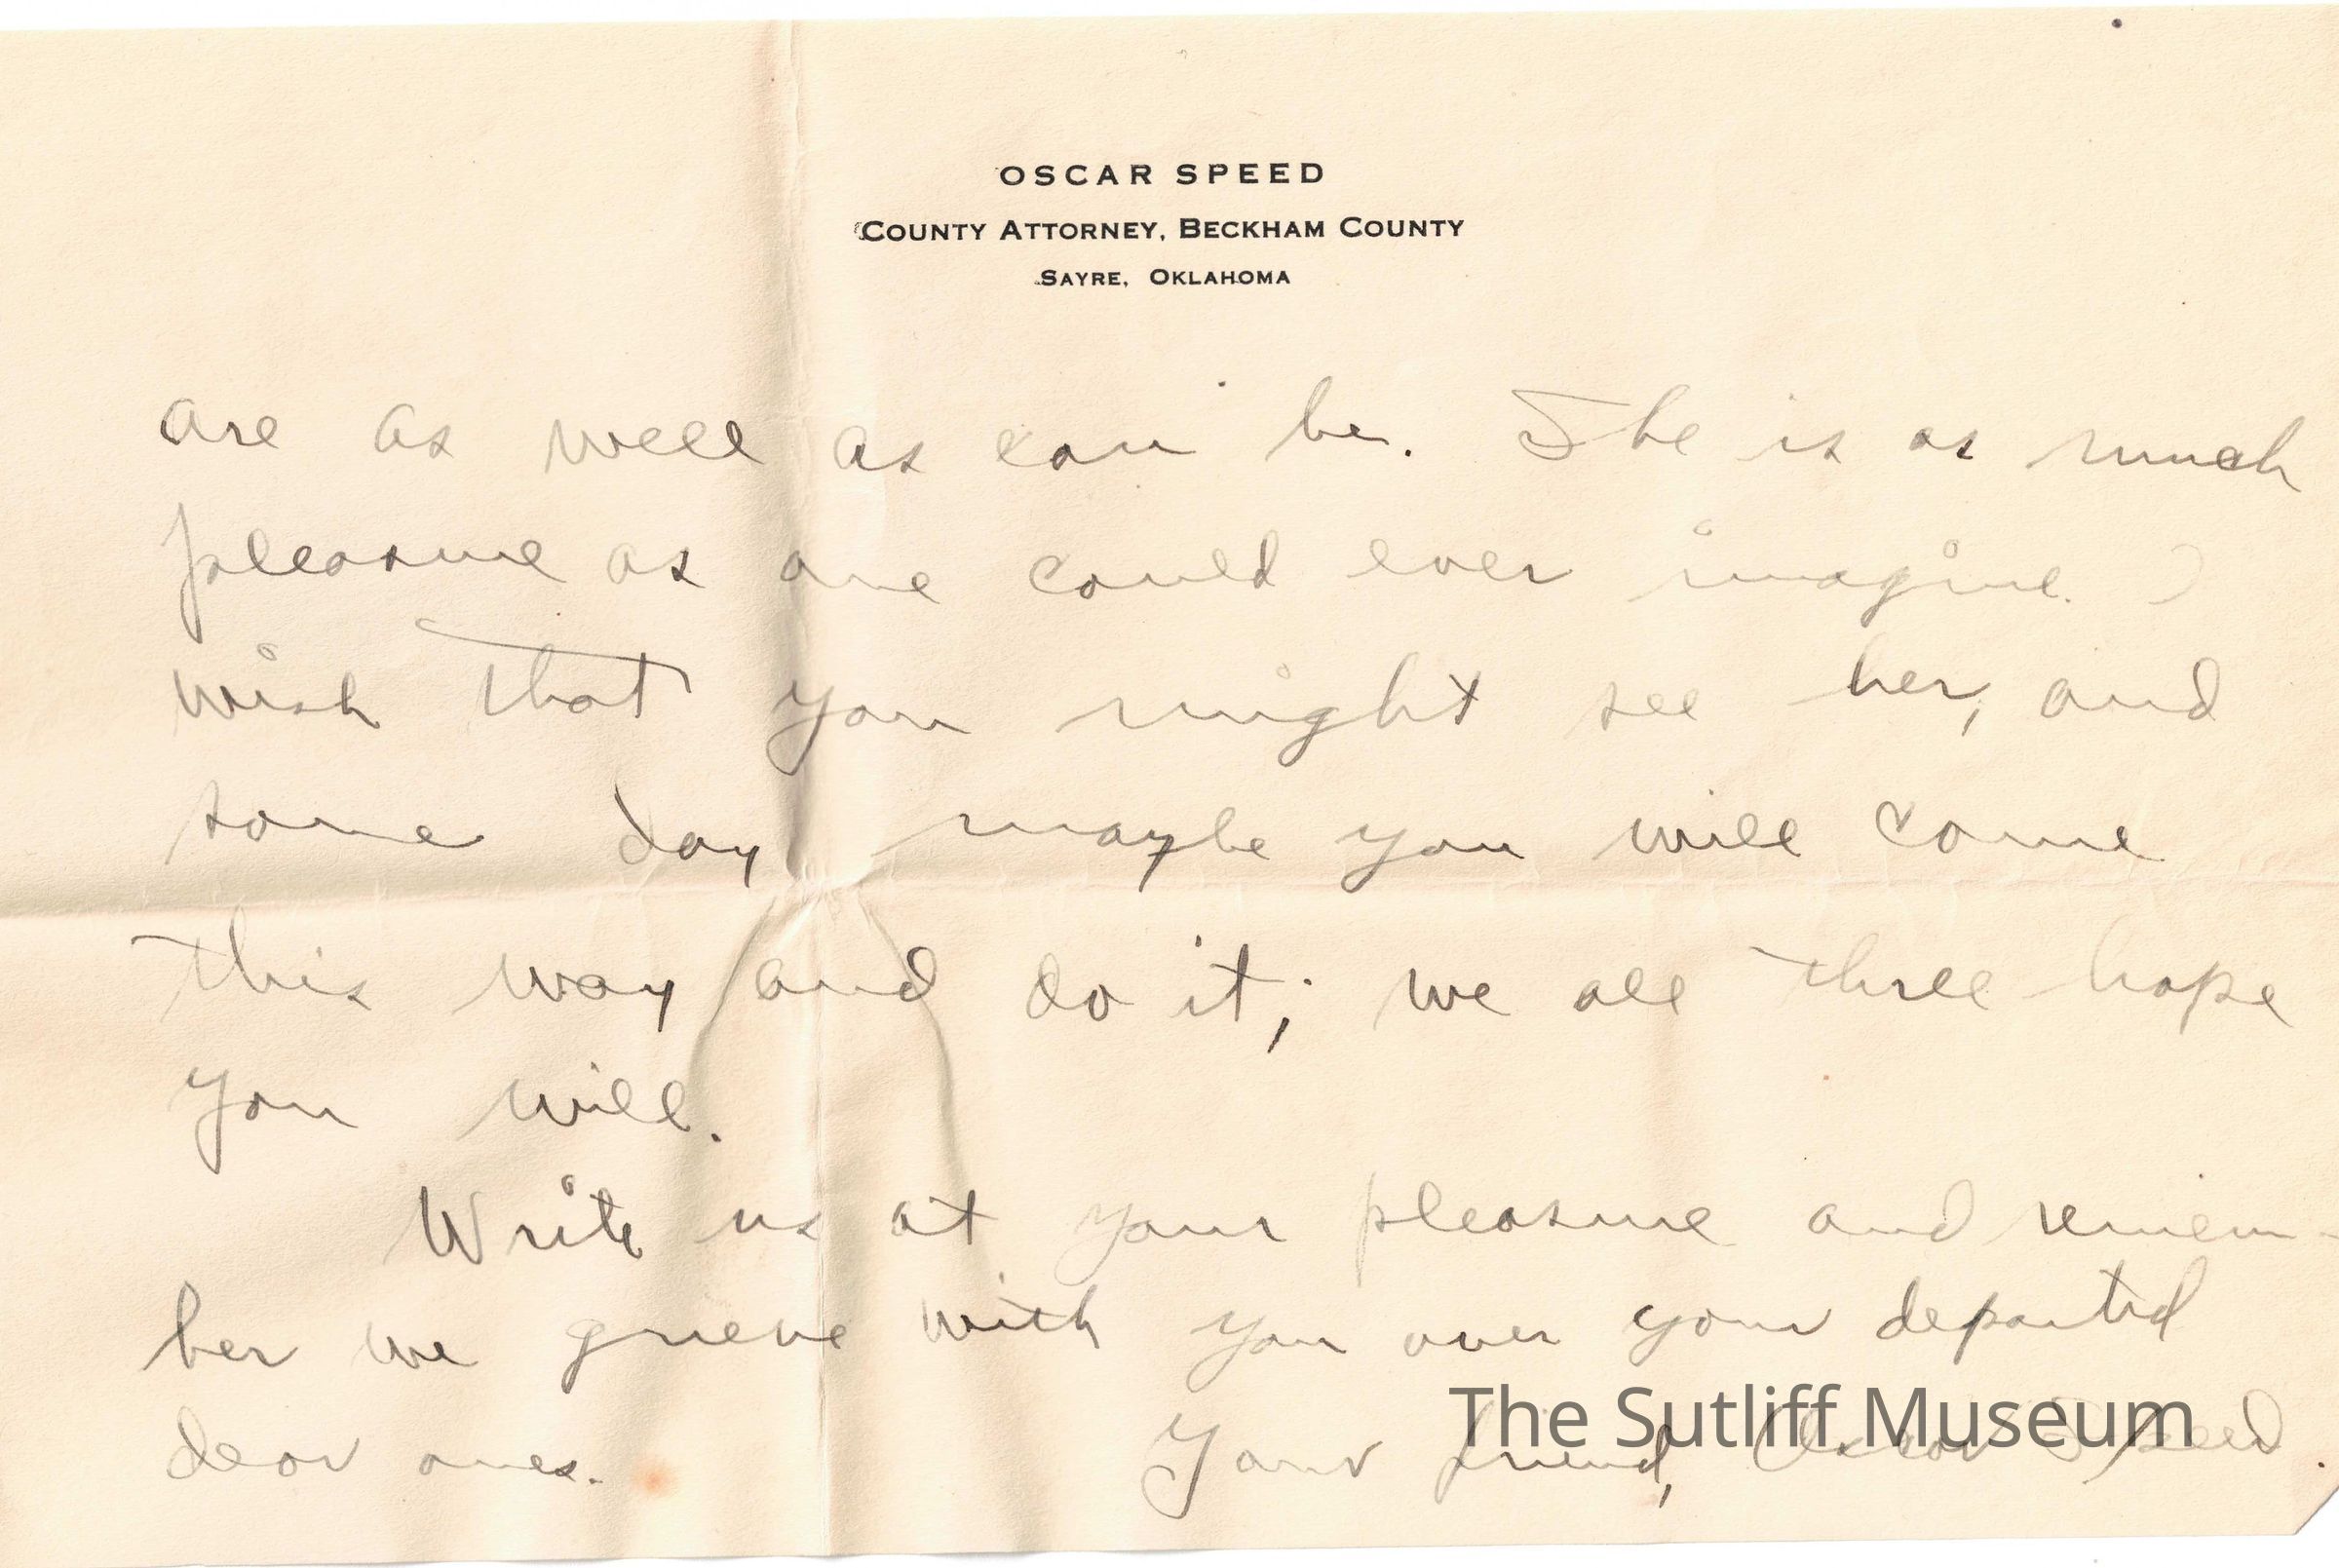 OSCAR SPEED
COUNTY ATTORNEY, BECKHAM COUNTY
SAYRE, OKLAHOMA
are as well as can be. She is as much
pleasure as one could ever imagine. I
wish that you might see her, and
some day maybe you will come
this way and do it; we all three hope
you will.
Write us at your pleasure and remem-
ber we grieve with you over your departed
dear ones. Your friend, Oscar Speed.
The Sutliff Museum